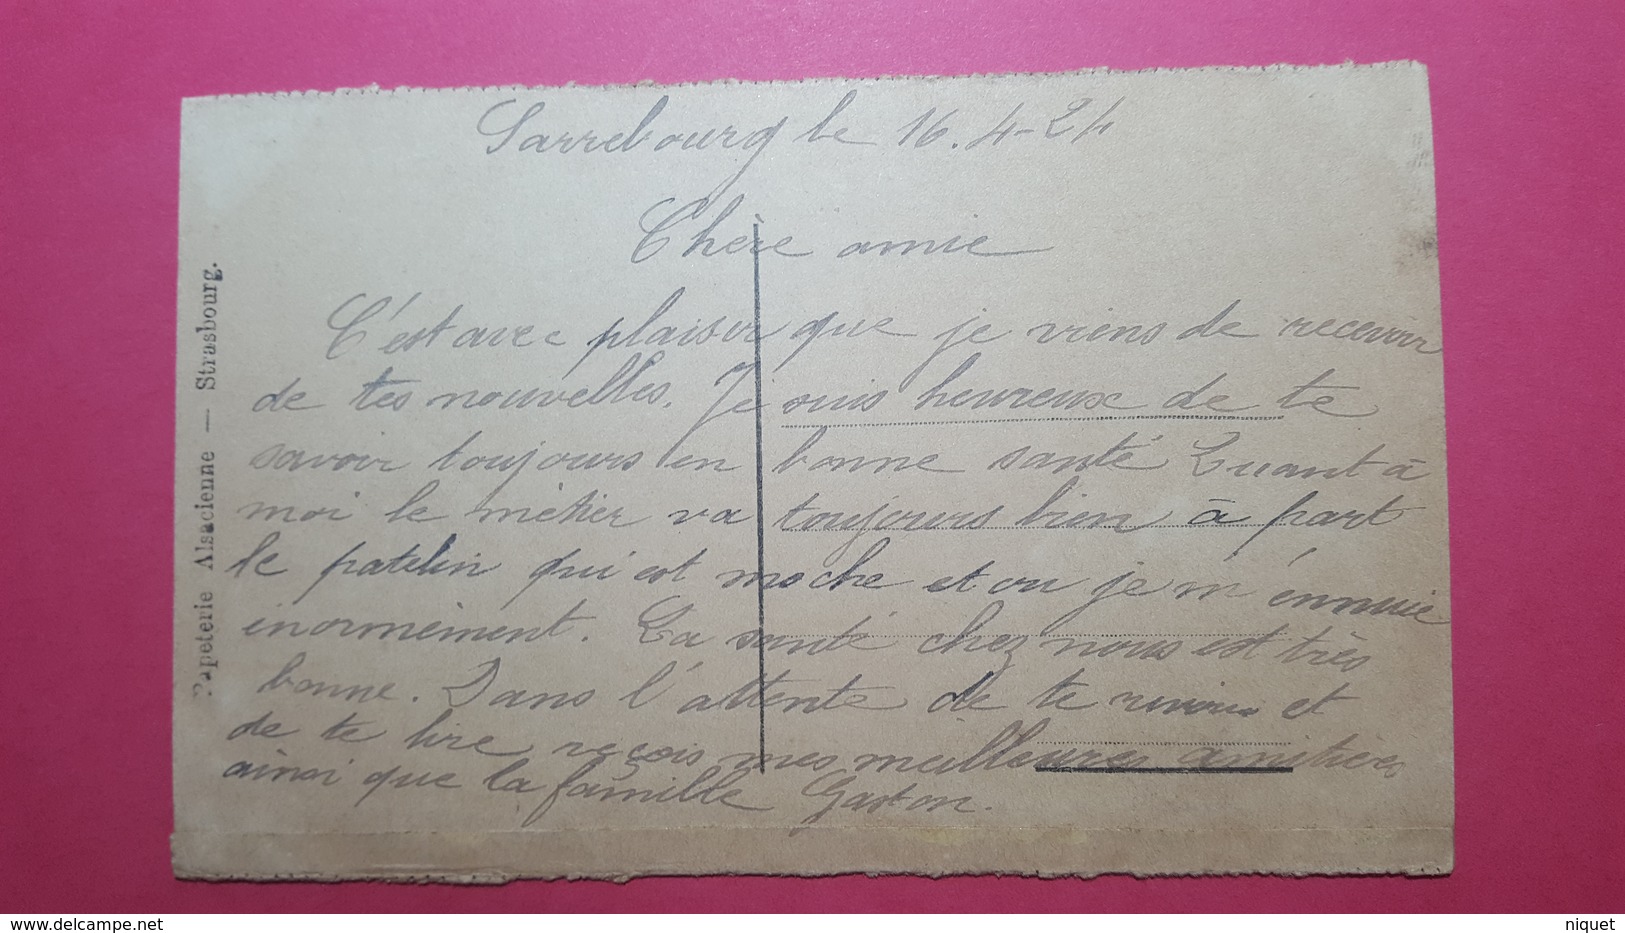 Sarrebourg le 16.4-24
Chère amie
C'est avec plaisir que je viens de recevoir
de tes nouvelles. Je suis heureux de te
savoir toujours en bonne santé Quant à
moi le métier va toujours bien à part
le patelin qui est moche et ou je m'ennuie
énormément. La santé chez nous est très
bonne. Dans l'attente de te revoir et
de te lire reçois mes meilleures amitiées
ainsi que la famille Gaston.
Papeterie Alsacienne — Strasbourg.
delcampe.net
niquet